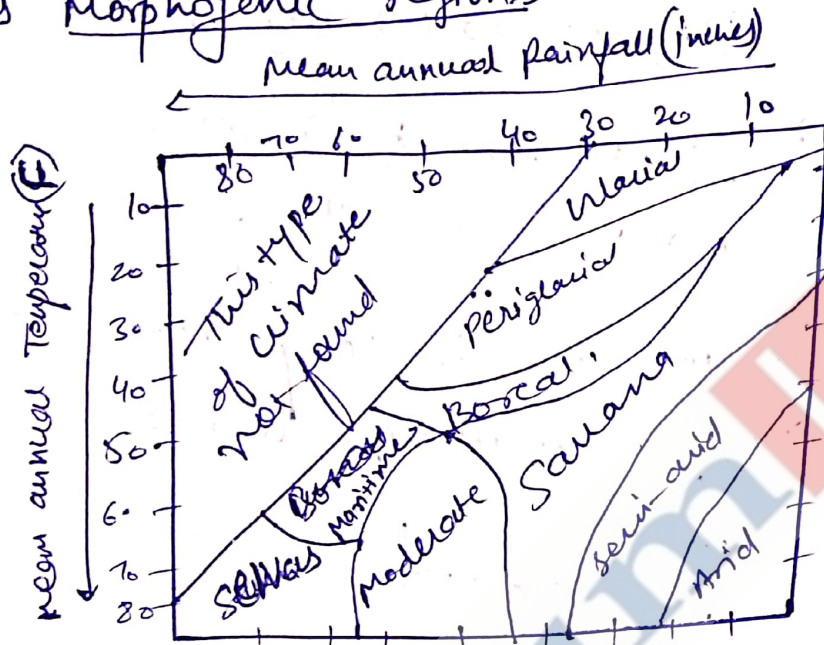 Morphogenic regions
Mean annual Rainfall (inches)
80 70 60 50 40 30 20 10
mean annual Temperature (F)
10
20
30
40
50
60
70
80
This type
of climate
not found
Glacial
Periglacial
Boreal
Savana
semi-arid
Arid
Maritime
Moderate
Selvas